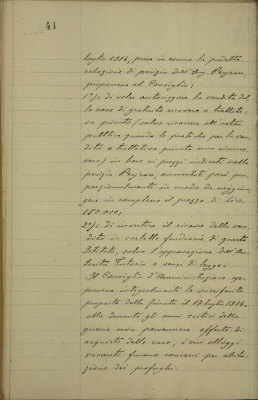 41
luglio 1916, presa in esame la predetta
relazione di perizia dell'Ing. Peyron,
proponeva al Consiglio:
1°/ di voler autorizzare la vendita del
le case di gratuito ricovero a trattati
va privata (salvo ricorrere all'asta
pubblica quando le pratiche per la ven
dita a trattativa privata non riusci
sero) in base ai prezzi indicati nella
perizia Peyron, aumentati però pro
porzionalmente in modo da raggiun
gere in complesso il prezzo di lire
180.000;
2°/ di investire il ricavo della ven
dita in cartelle fondiarie di questo
Istituto, salvo l'approvazione dell'Au
torità Tutoria a sensi di legge.
Il Consiglio d'Amministrazione ap
provava integralmente la surriferita
proposta della Giunta il 19 luglio 1916.
Ma durante gli anni critici della
guerra non pervennero offerte di
acquisto delle case, i cui alloggi
vacanti furono concessi per abita
zione dei profughi.